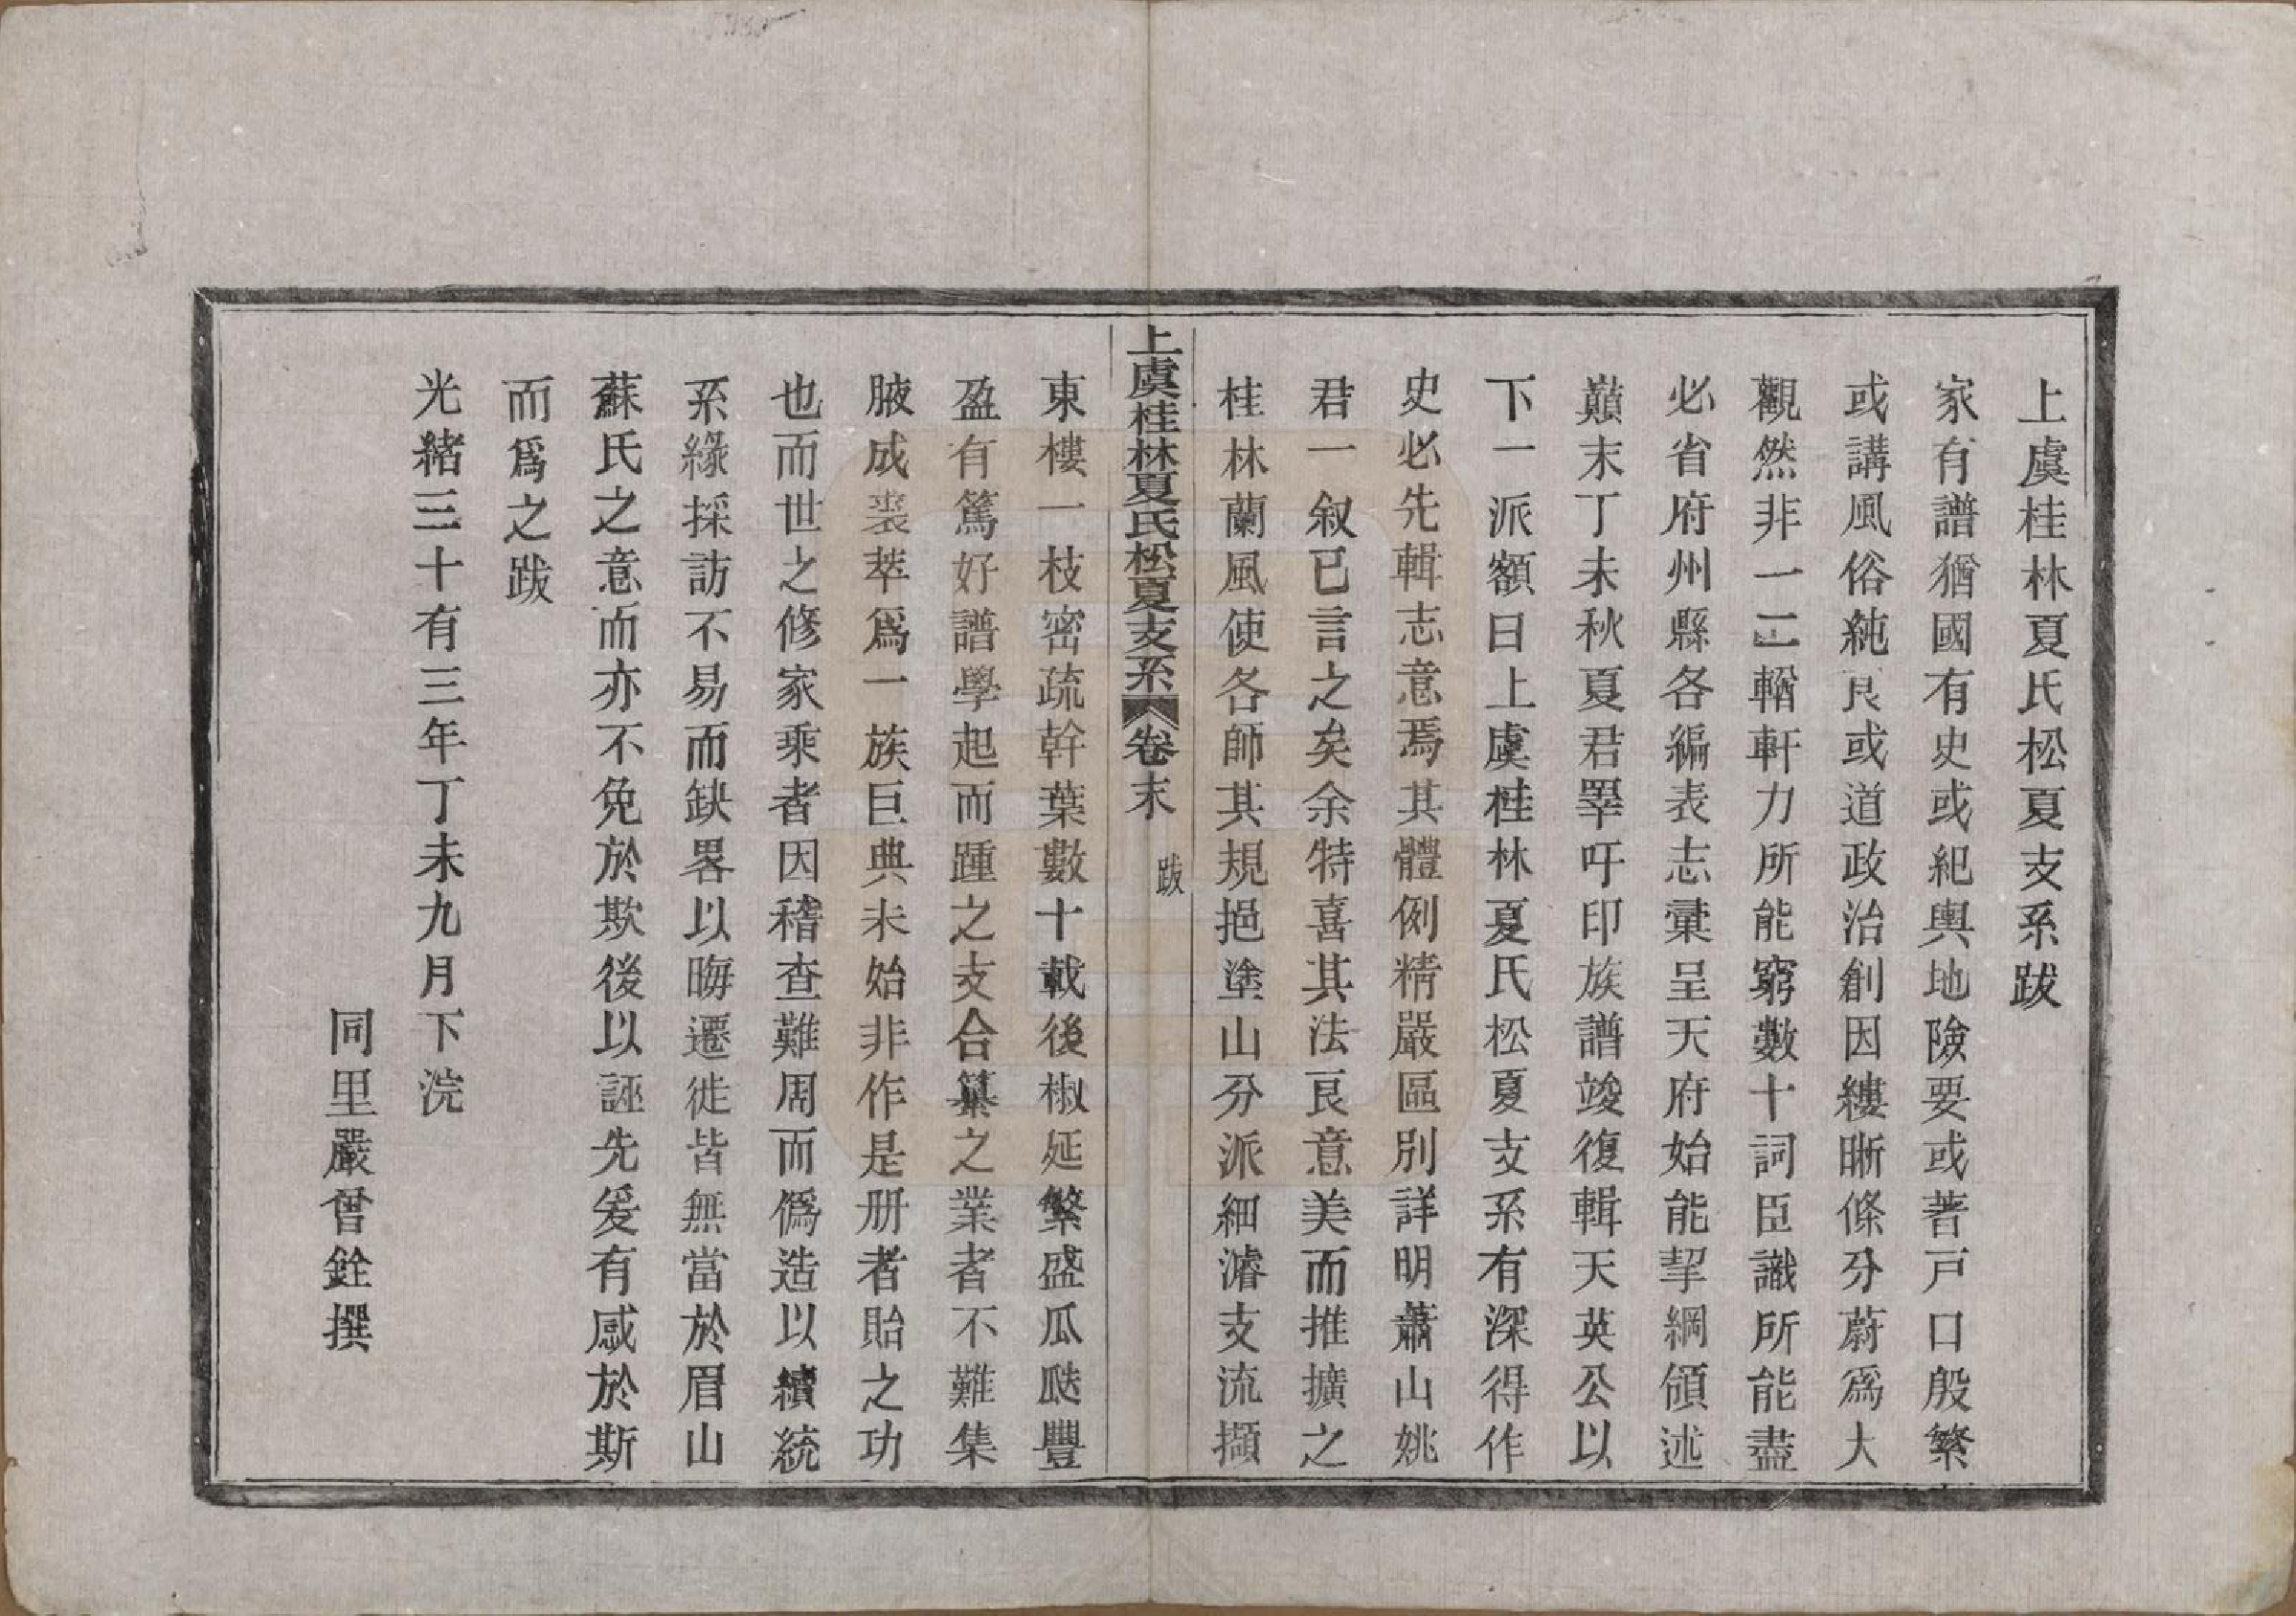 上虞桂林夏氏松夏支系跋
家有譜猶國有史或紀輿地險要或著戸口殷繁
或講風俗純良或道政治創因縷晰條分蔚爲大
觀然非一二輶軒力所能窮數十詞臣識所能盡
必省府州縣各編表志彙呈天府始能挈綱領述
巔末丁未秋夏君睪吁印族譜竣復輯天英公以
下一派額曰上虞桂林夏氏松夏支系有深得作
史必先輯志意焉其體例精嚴區別詳明蕭山姚
君一叙已言之矣余特喜其法良意美而推擴之
桂林蘭風使各師其規挹塗山分派細濬支流擷
上虞桂林夏氏松夏支系 卷末 跋
東樓一枝密疏幹葉數十載後椒延繁盛瓜瓞豐
盈有篤好譜學起而踵之支合纂之業者不難集
腋成裘萃爲一族巨典未始非作是册者貽之功
也而世之修家乘者因稽查難周而僞造以續統
系緣採訪不易而缺畧以晦遷徙皆無當於眉山
蘇氏之意而亦不免於欺後以誣先爰有感於斯
而爲之跋
光緒三十有三年丁未九月下浣
同里嚴曾銓撰